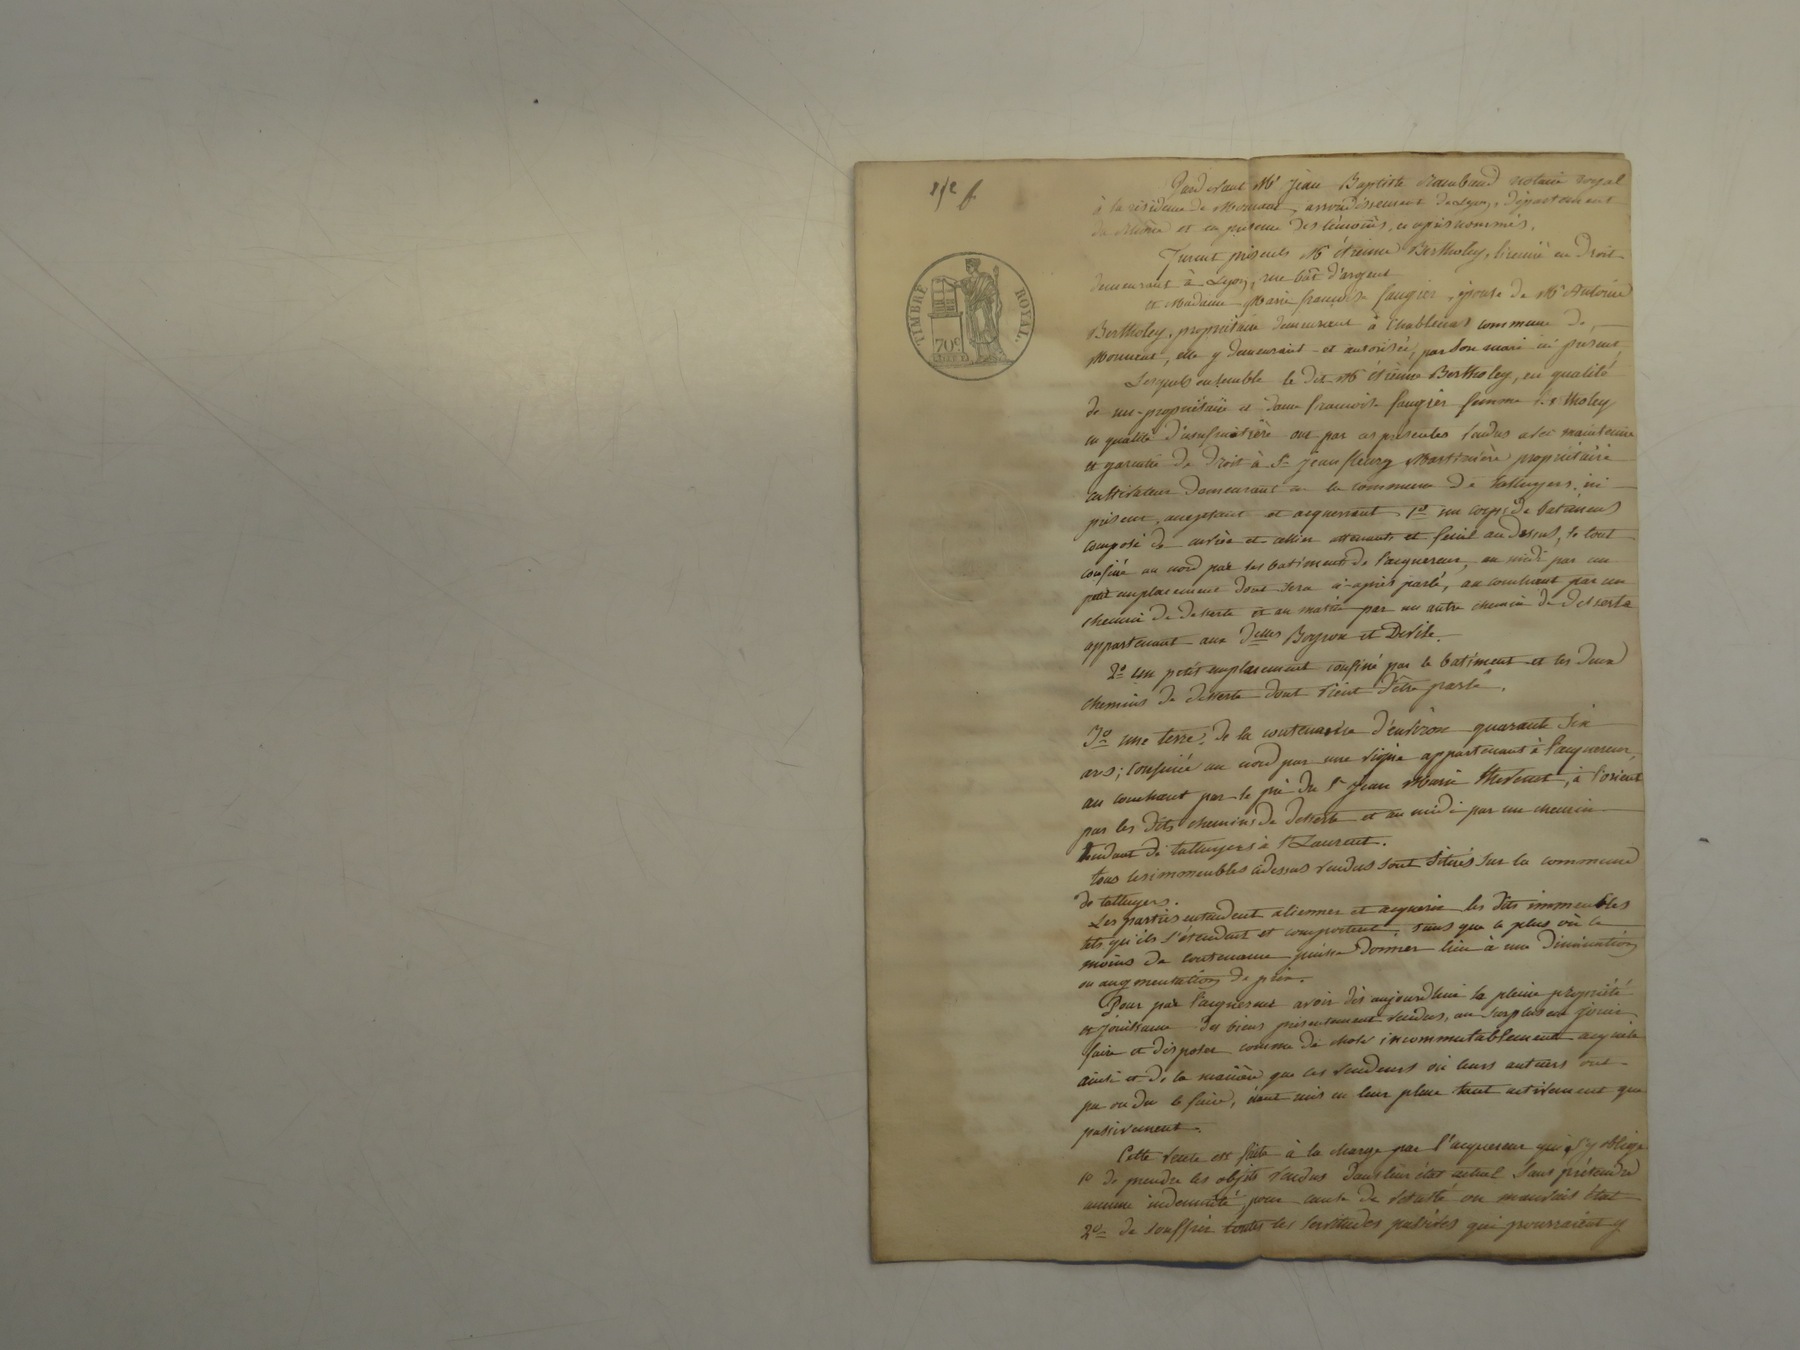 Pardevant Me Jean Baptiste Raimbaud notaire royal
à la résidence de Mornant, arrondissement de Lyon, département
du Rhône et en présence des témoins, ci après nommés.
Furent présents Mr Etienne Bertholey, licencié en Droit
demeurant à Lyon, rue bât d'argent
et Madame Marie françoise faugier, épouse de Mr Antoine
Bertholey, propriétaire demeurant à commune de
Mornant, elle y demeurant et autorisée, par son mari ici présent
Lesquels ensemble le dit Mr Etienne Bertholey, en qualité
de nu-propriétaire et dame francoise faugier femme Bertholey
en qualité d'usufruitière ont par ces présentes vendus avec maintenue
et garantie de Droit à Sr Jean fleury Martinière propriétaire
cultivateur demeurant en la commune de talluyers, ici
présent, acceptant et acquerrant, 1o un corps de batiments
composé de cuvier et cellier attenants et fenil au dessus, le tout
confiné au nord par les batiments de l'acquereur, au midi par un
petit emplacement dont sera ci-après parlé, au couchant par un
chemin de desserte et au matin par un autre chemin de desserte
appartenant aux Delles Boyron et Devile.
2o un petit emplacement confiné par le batiment et les deux
chemins de desserte dont vient d'être parlé.
3o une terre, de la contenance d'environ quarante six
ares; confinée au nord par une vigne appartenant à l'acquereur,
au couchant par le pré du Sr Jean Marie thevenet, à l'orient
par les dits chemins de desserte et au midi par un chemin
tendant de talluyers à St Laurent.
tous les immeubles cidessus vendus sont situés sur la commune
de talluyers.
Les parties entendent aliener et acquerir les dits immeubles
tels qu'ils s'étendent et comportent, sans que le plus où le
moins de contenance puisse donner lieu à une diminution
ou augmentation de prix.
Pour par l'acquereur avoir dès aujourdhui la pleine propriété
et jouissance des biens présentement vendus, au surplus en jouir
faire et disposer comme de chose incommutablement acquise
ainsi et de la manière que les vendeurs où leurs auteurs ont
pu ou du le faire, étant mis en leur place tant activement que
passivement.
Cette vente est faite à la charge par l'acquereur qui s'y oblige
1o de prendre les objets vendus dans leur état actuel sans prétendre
aucune indemnité, pour cause de vétusté ou mauvais état
2o de souffrir toutes les servitudes passives qui pourraient y
TIMBRE ROYAL.
70c